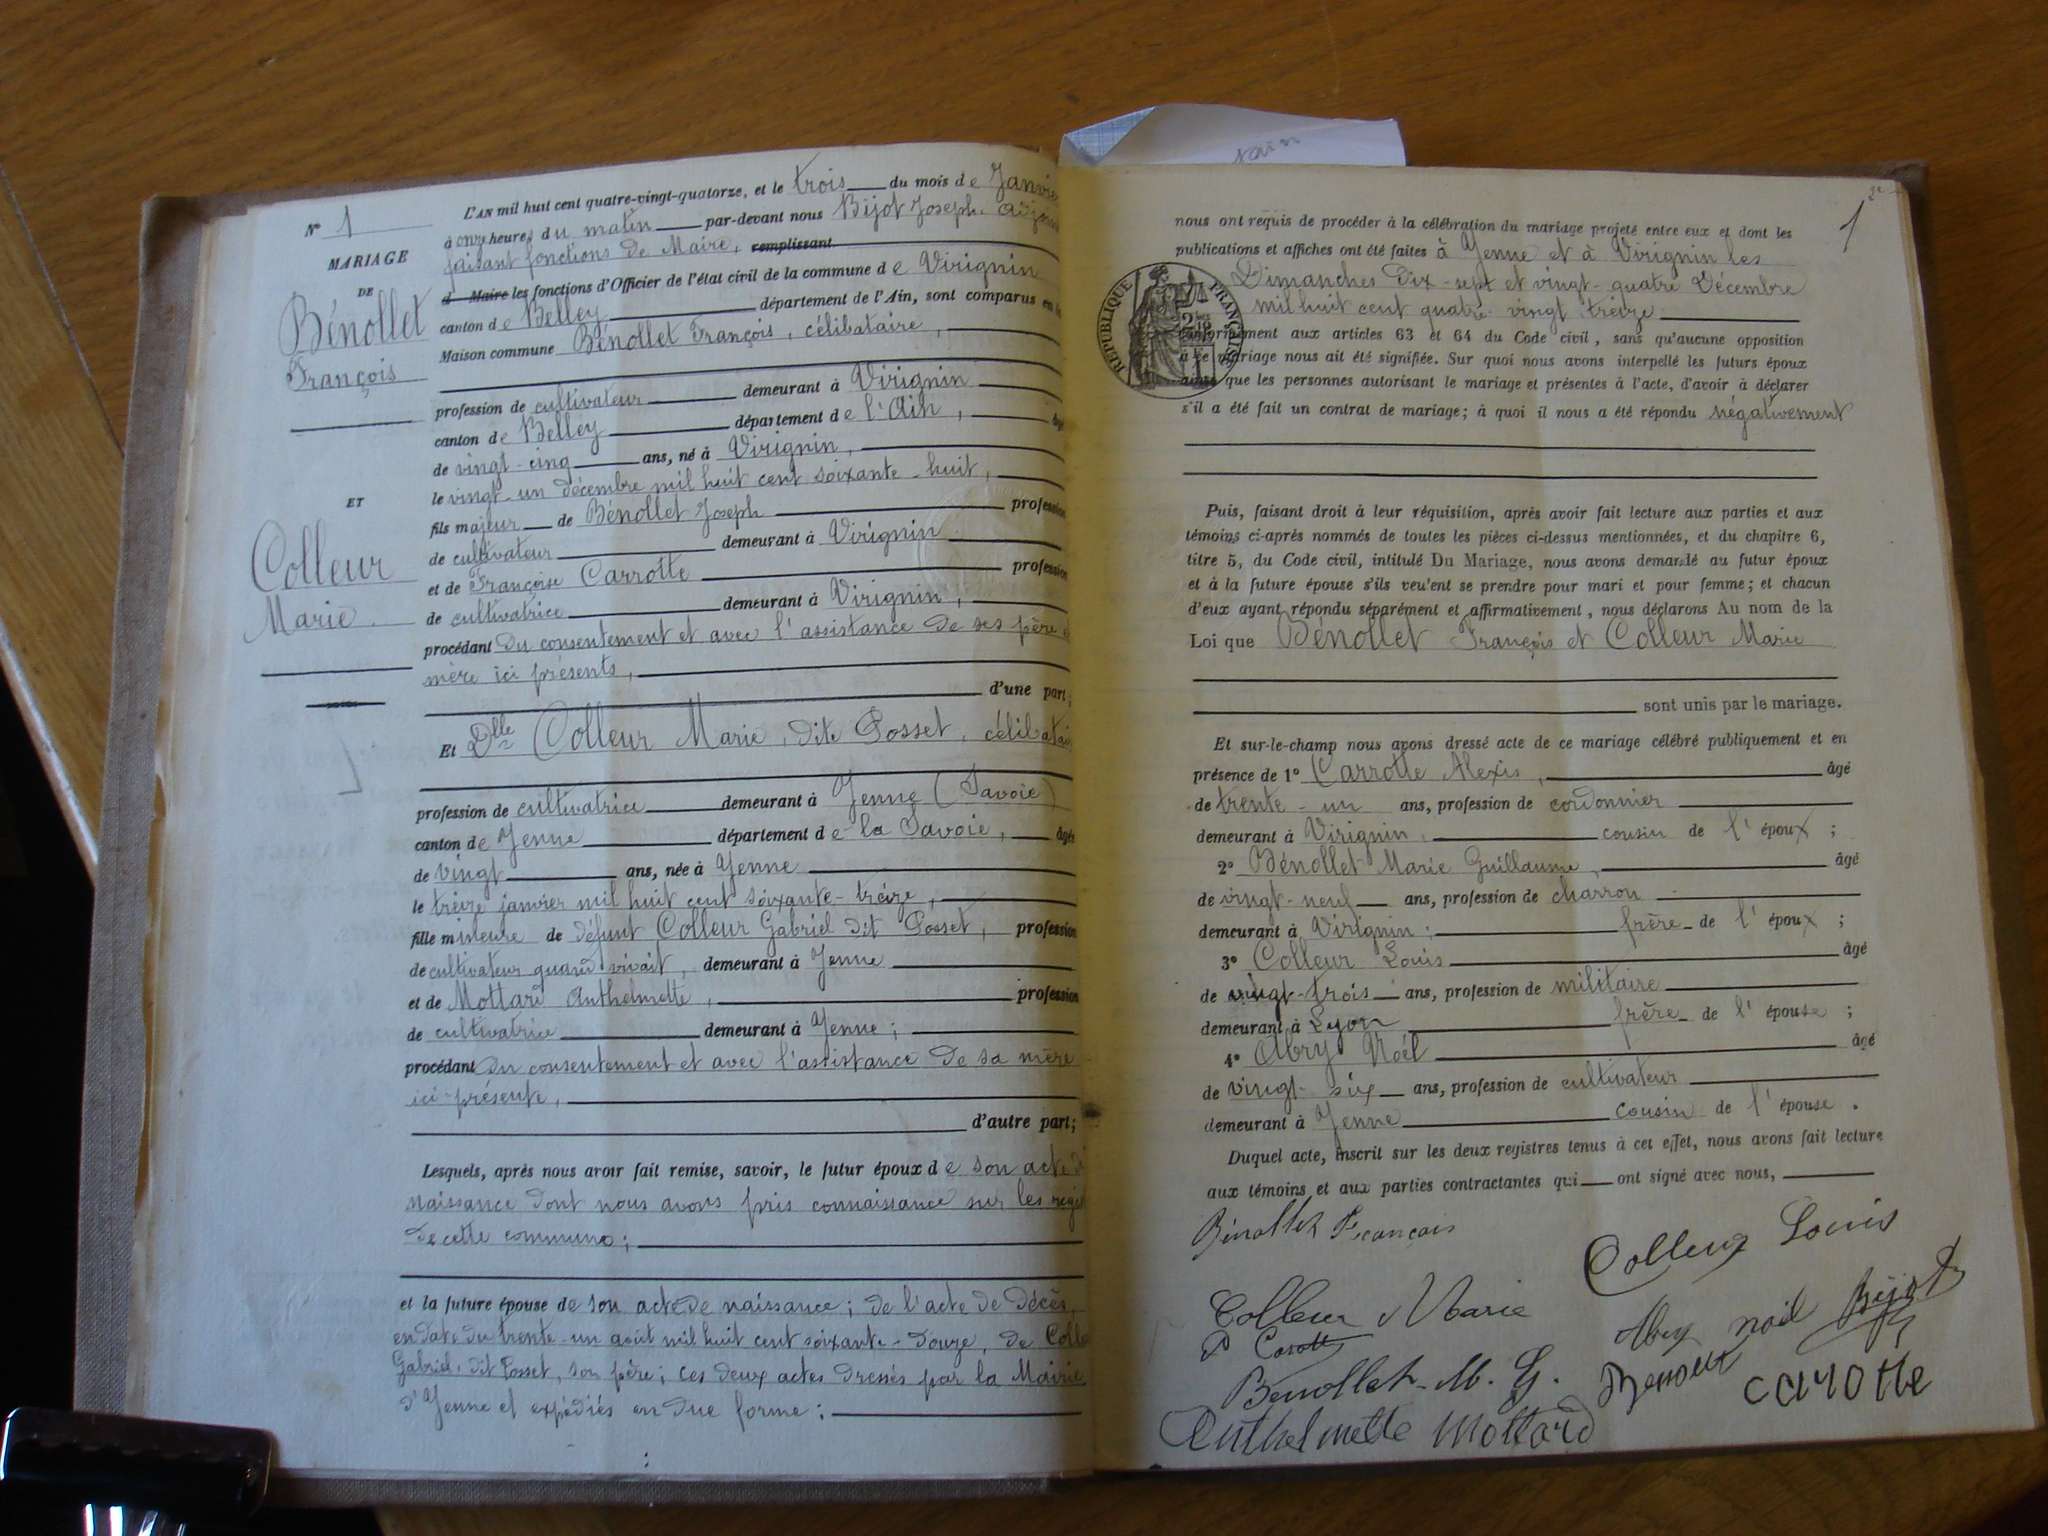 L'AN mil huit cent quatre-vingt-quatorze, et le trois du mois de Janvier
N° 1
à onze heures du matin par-devant nous Bijot Joseph, adjoint
MARIAGE
faisant fonctions de Maire, remplissant
DE
d Maire les fonctions d'Officier de l'état civil de la commune de Virignin
Bénollet
canton de Belley département de l'Ain, sont comparus en la
François
Maison commune Bénollet François, célibataire,
profession de cultivateur demeurant à Virignin
canton de Belley département de l'Ain, âgé
de vingt-cinq ans, né à Virignin,
le vingt-un décembre mil huit cent soixante-huit,
ET
fils majeur de Bénollet Joseph profession
de cultivateur demeurant à Virignin
Colleur
et de Françoise Carrotte profession
Marie.
de cultivatrice demeurant à Virignin,
procédant du consentement et avec l'assistance de ses père et
mère ici présents,
d'une part;
Et Dlle Colleur Marie, dite Posset, célibataire
profession de cultivatrice demeurant à Yenne (Savoie)
canton de Yenne département de la Savoie, âgée
de vingt ans, née à Yenne
le treize janvier mil huit cent soixante-treize,
fille mineure de défunt Colleur Gabriel dit Posset, profession
de cultivateur quand vivait, demeurant à Yenne
et de Mottard Anthelmette, profession
de cultivatrice demeurant à Yenne;
procédant du consentement et avec l'assistance de sa mère
ici présente,
d'autre part;
Lesquels, après nous avoir fait remise, savoir, le futur époux de son acte de
naissance dont nous avons pris connaissance sur les regis
de cette commune;
et la future épouse de son acte de naissance; de l'acte de décès,
en date du trente-un août mil huit cent soixante-douze, de Colle
Gabriel, dit Posset, son père; ces deux actes dressés par la Mairie
d'Yenne et expédiés en due forme;
1 2e
nous ont requis de procéder à la célébration du mariage projeté entre eux et dont les
publications et affiches ont été faites à Yenne et à Virignin les
Dimanches dix-sept et vingt-quatre Décembre
mil huit cent quatre vingt treize
RÉPUBLIQUE FRANÇAISE
conformément aux articles 63 et 64 du Code civil, sans qu'aucune opposition
à ce mariage nous ait été signifiée. Sur quoi nous avons interpellé les futurs époux
ainsi que les personnes autorisant le mariage et présentes à l'acte, d'avoir à déclarer
s'il a été fait un contrat de mariage; à quoi il nous a été répondu négativement
Puis, faisant droit à leur réquisition, après avoir fait lecture aux parties et aux
témoins ci-après nommés de toutes les pièces ci-dessus mentionnées, et du chapitre 6,
titre 5, du Code civil, intitulé Du Mariage, nous avons demandé au futur époux
et à la future épouse s'ils veu'ent se prendre pour mari et pour femme; et chacun
d'eux ayant répondu séparément et affirmativement, nous déclarons Au nom de la
Loi que Bénollet François et Colleur Marie
sont unis par le mariage.
Et sur-le-champ nous avons dressé acte de ce mariage célébré publiquement et en
présence de 1° Carrotte Alexis, âgé
de trente-un ans, profession de cordonnier
demeurant à Virignin, cousin de l'époux;
2° Bénollet Marie Guillaume, âgé
de vingt-neuf ans, profession de charron
demeurant à Virignin; frère de l'époux;
3° Colleur Louis âgé
de vingt-trois ans, profession de militaire
demeurant à Lyon frère de l'épouse;
4° Abry Noël âgé
de vingt-six ans, profession de cultivateur
demeurant à Yenne cousin de l'épouse.
Duquel acte, inscrit sur les deux registres tenus à cet effet, nous avons fait lecture
aux témoins et aux parties contractantes qui ont signé avec nous,
Bénollet Francais
Colleur Louis
Colleur Marie
Abry noël Bijot
Benollet. M. G.
carotte
Anthelmette Mottard